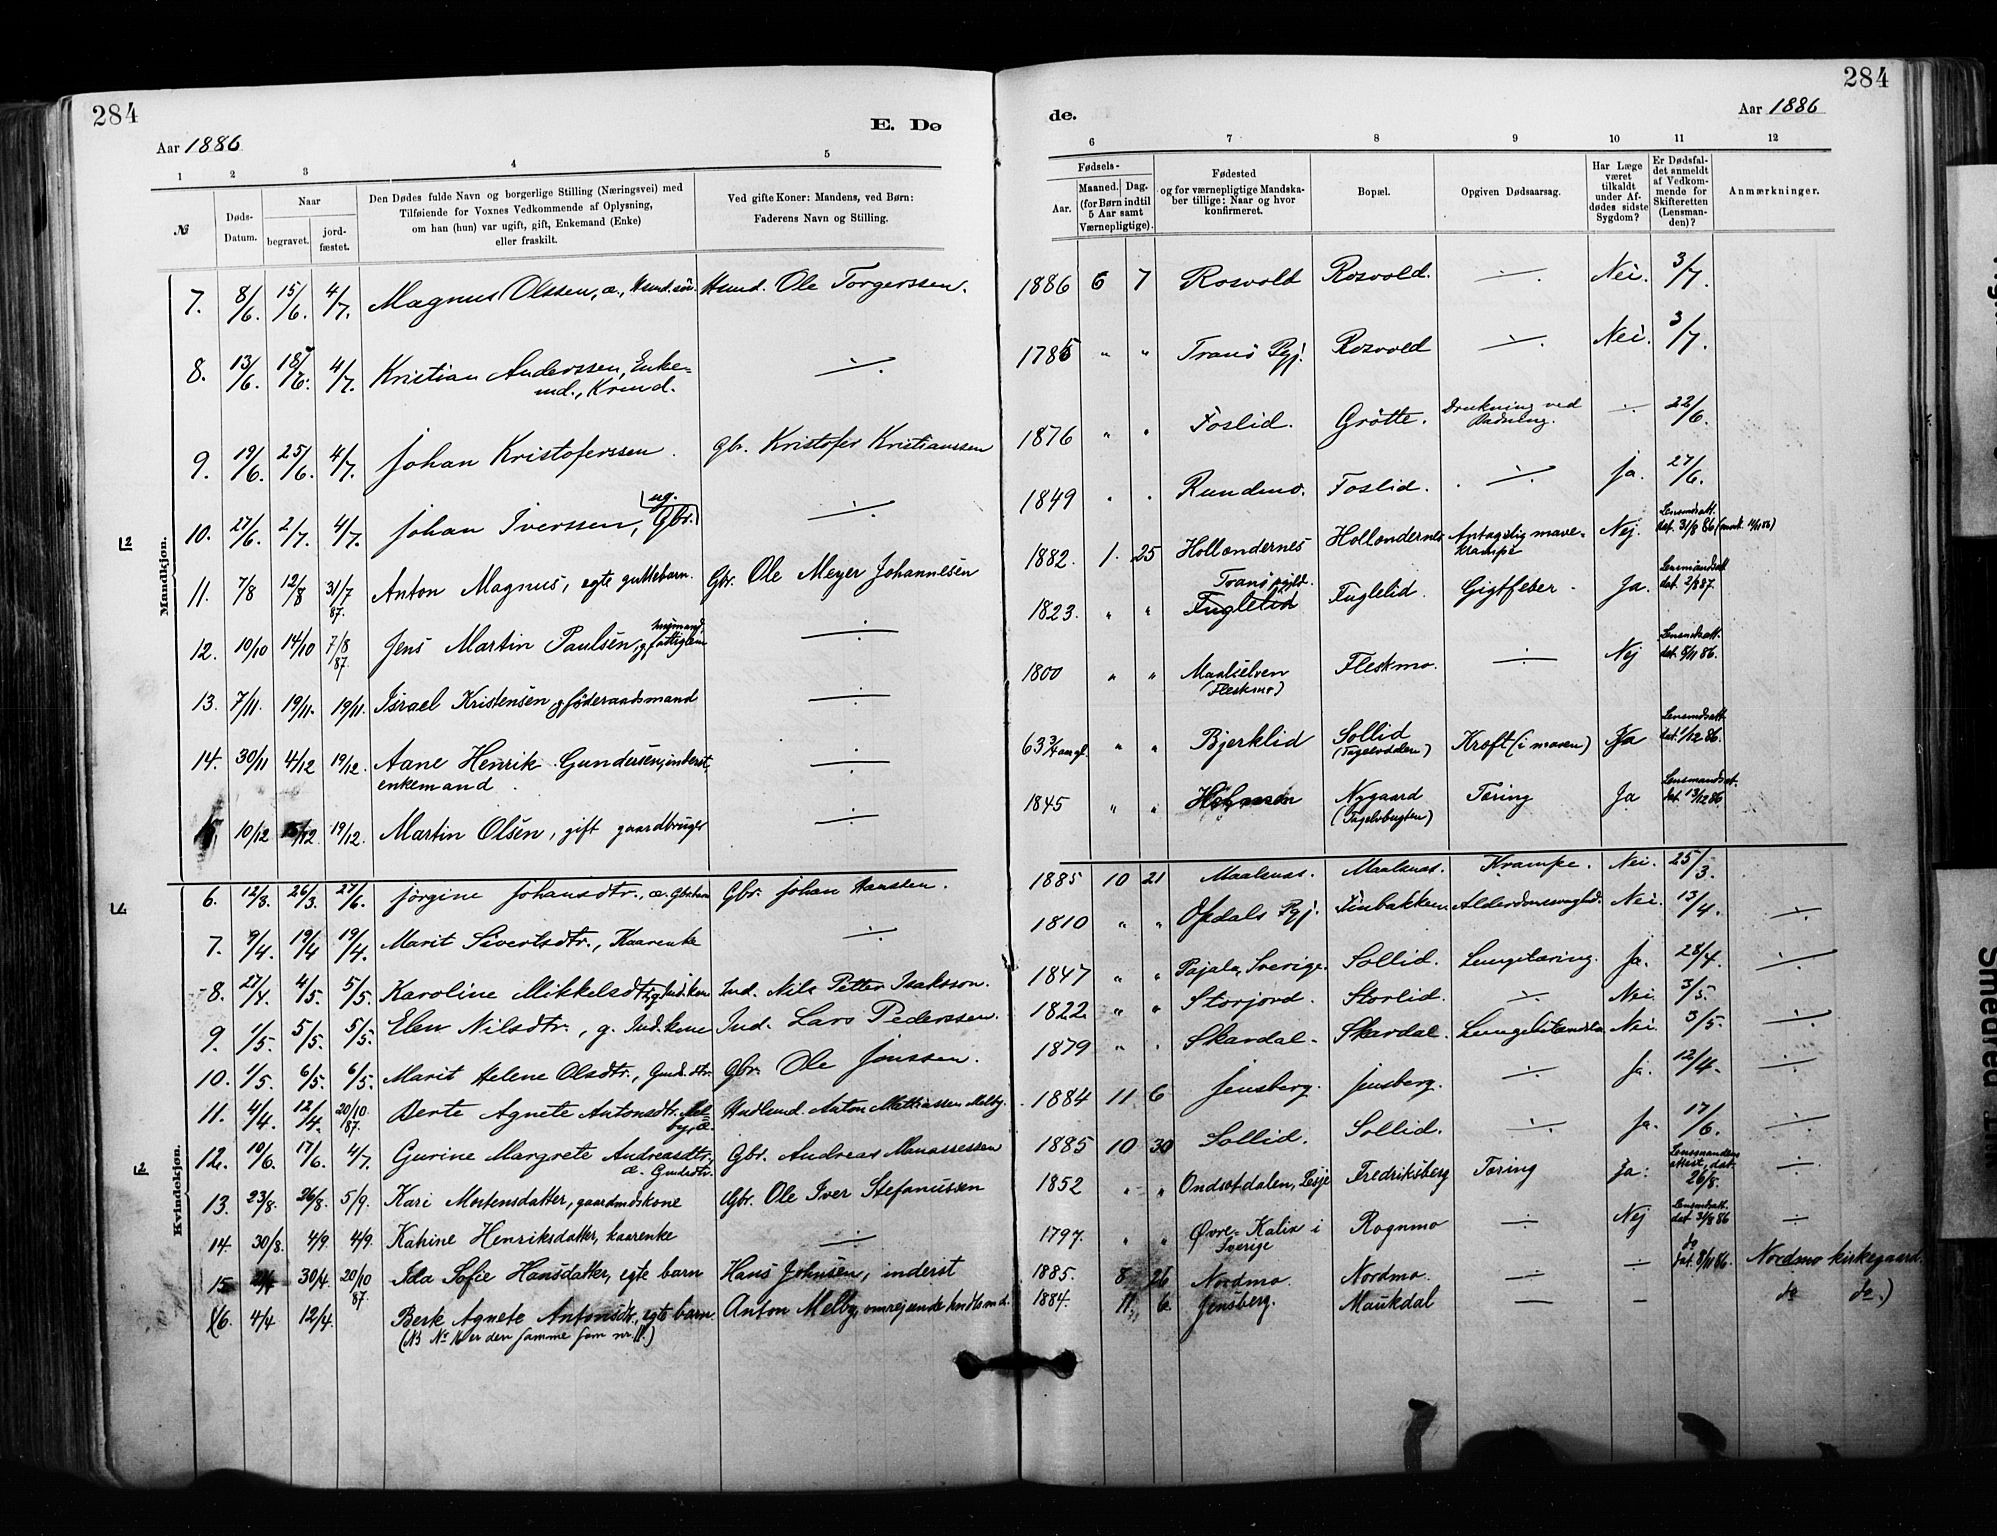 284
Aar 1886
E. Dø
1 2 3 4 5
№
Døds-Datum.
Naar
begravet.
jordfæstet.
Den Dødes fulde Navn og borgerlige Stilling (Næringsvei) med
Tilføiende for Voxnes Vedkommende af Oplysning,
om han (hun) var ugift, gift, Enkemand (Enke)
eller fraskilt.
Ved gifte Koner: Mandens, ved Børn:
Faderens Navn og Stilling.
Mandkjøn.
7. 8/6. 15/6. 4/7. Magnus Olssen, æ., Husmd. søn. Husmd. Ole Torgerssen.
8. 13/6. 18/6. 4/7. Kristian Anderssen, Enke-
md., Krmd. ÷
9. 19/6. 25/6. 4/7. Johan Kristoferssen. Gbr. Kristofer Kristianssen
10. 27/6. 2/7. 4/7. Johan Iverssen, ug. Gbr. ÷
11. 7/8 12/8 31/7 87. Anton Magnus, egte guttebarn. Gbr. Ole Meyer Johannesen
12. 10/10 14/10 7/8 87. Jens Martin Paulsen, g fattiglem ÷
13. 7/11. 19/11. 19/11. Israel Kristensen, g føderaadsmand ÷
14. 30/11 4/12 19/12. Aane Henrik Gundersen, inderst,
enkemand. ÷
10/12 15/12 19/12. Martin Olsen, gift gaardbruger ÷
Kvindekjøn.
6. 12/3. 26/3. 27/6. Jørgine Johansdtr., æ. Gbr. barn Gbr. Johan Hansten.
7. 9/4. 19/4 19/4. Marit Sivertsdtr., Kaarenke ÷
8. 27/4. 4/5. 5/5. Karoline Mikkelsdtr., g Ind. kone Ind. Nils Petter Isaksson.
9. 1/5. 5/5. 5/5. Elen Nilsdtr., g. Ind. kone Ind. Lars Pederssen.
10. 1/5. 6/5. 6/5. Marit Helene Olsdtr., Gmd. dtr. Gbr. Ole Jonssen.
11. 4/4. 12/4. 20/10 87. Berte Agnete Antonsdtr. Mel-
by, æ. Handlsmd. Anton Mathiassen Melby.
12. 10/6. 17/6. 4/7. Gurine Margrete Andreasdtr.,
æ. Gmdsdtr. Gbr. Andreas Manassessen
13. 23/8. 26/8. 5/9. Kari Mortensdatter, gaardmdskone Gbr. Ole Iver Stefanussen
14. 30/8. 4/9. 4/9. Katrine Henriksdatter, kaarenke ÷
15 30/4. 20/10 87. Ida Sofie Hansdatter, egte barn Hans Johnsen, inderst
16. 4/4. 12/4. Berte Agnete Antonsdtr., egte barn. Anton Melby, omrejsende handlsmd.
(NB No 16 er den samme som nr. 11.)
284
de.
Aar 1886
6 7 8 9 10 11 12
Fødsels-
Aar.
Maaned. Dag.
(for Børn indtil
5 Aar samt
Værnepligtige).
Fødested
og for værnepligtige Mandska-
ber tillige: Naar og hvor
konfirmeret.
Bopæl.
Opgiven Dødsaarsag.
Har Læge
været
tilkaldt
under Af-
dødes sidste
Sygdom?
Er Dødsfal-
det anmeldt
af Vedkom-
mende for
Skifteretten
(Lensman-
den)?
Anmærkninger.
1886 6 7 Rosvold Rosvold. ÷ Nei. 3/7.
1785 " " Tranø Pgj. Rosvold ÷ Nei. 3/7.
1876 " " Foslid. Grøtte. Drukning ved
Badning. ÷ 22/6.
1849 " " Rundmo. Foslid. ÷ Ja. 27/6.
1882. 1. 25 Hollændernes Hollændernes Antagelig mave-
krampe Nej. Lensmdsatt.
dat. 31/8 86
1823. " " Tranø pgjld.
Fuglelid Fuglelid. Gigtfeber. Ja. Lensmandsatt.
dat. 2/8 87.
1800 " " Maalselven
(Fleskmo) Fleskmo. ÷ Nej Lensmdsatt.
dat. 8/11 86.
63 3/4 aar gl. " " Bjerklid Sollid
(Tagelvdalen) Kræft (i maven) Ja Lensmdsatt.
dat. 1/12 86.
1845 " " Nygaard
(Tagelvbugten) Tæring Ja Lensmandsat.
dat. 13/12 86
1885 10 21 Maalsnæs. Maalsnæs. Krampe. Nei. 25/3.
1810 " " Opdals Pgj. Finbakken Alderdomssvaghed. Nei. 13/4. ÷
1847 " " Pajala, Sverige. Sollid. Lungetæring. Ja. 28/4. ÷
1822. " " Storjord. Storlid. ÷ Nei. 3/5.
1879 " " Skardal. Skardal. Lungebetændelse Nei. 3/5. ÷
1884 11 6 Jensberg. Jensberg. ÷ Ja. 12/4. ÷
1885 10 30 Sollid. Sollid. ÷ Ja. 17/6. ÷
1852 " " Ondsetdalen, Lesje Fredriksberg Tæring Ja. Lensmandens
attest, dat.
26/8. ÷
1797. " " Øvre-Kalix i
Sverige Rognmo ÷ Nej Lensmdsatt.
dat 31/8 86 ÷
1885. 8 26 Nordmo. Nordmo. ÷ ÷ do
dat. 8/11 86. Nordmo kirkegaard.
1884. 11. 6 Jensberg. Maukdal — — do do.)